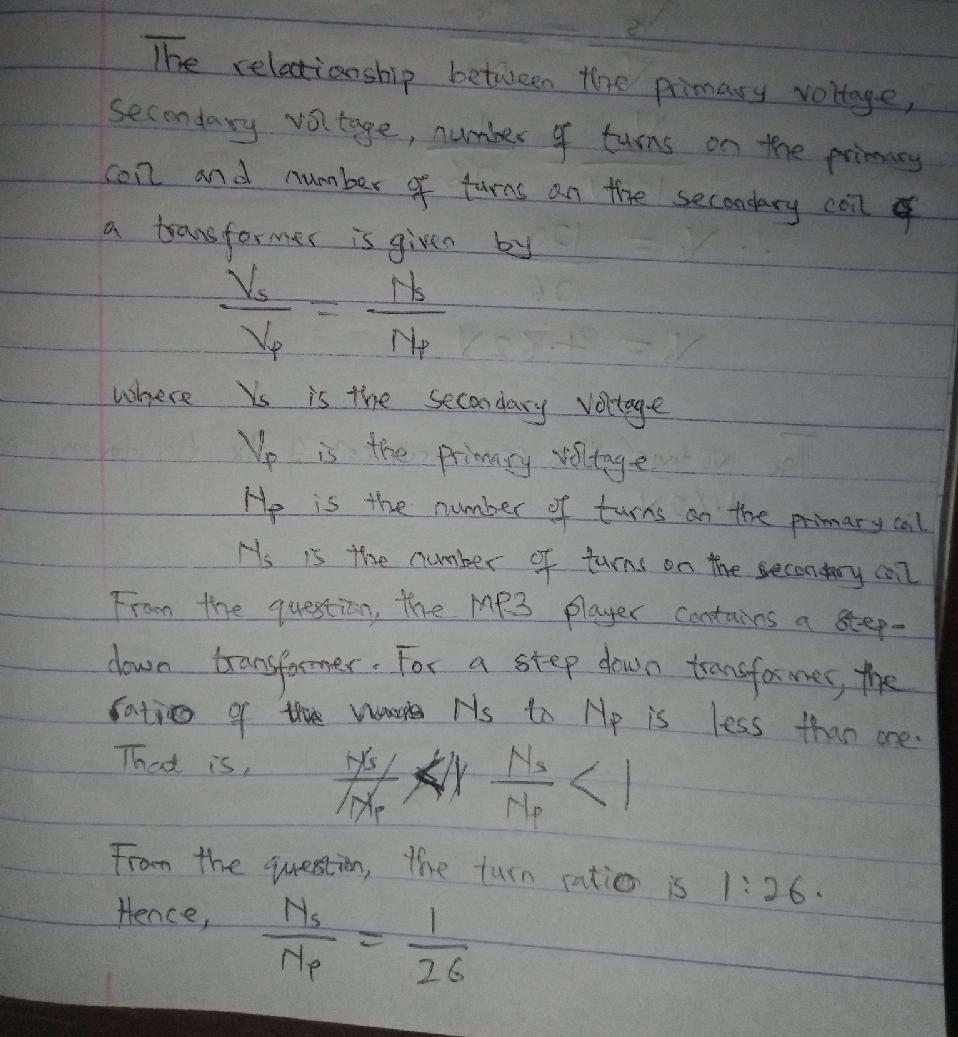 The relationship between the primary voltage,
secondary voltage, number of turns on the primary
coil and number of turns on the secondary coil of
a transformer is given by
Vs/Vp = Ns/Np
where Vs is the secondary voltage
Vp is the primary voltage
Np is the number of turns on the primary coil
Ns is the number of turns on the secondary coil
From the question, the MP3 player contains a step-
down transformer. For a step down transformer, the
ratio of the Ns to Np is less than one.
That is, Ns/Np < 1
From the question, the turn ratio is 1:26.
Hence, Ns/Np = 1/26